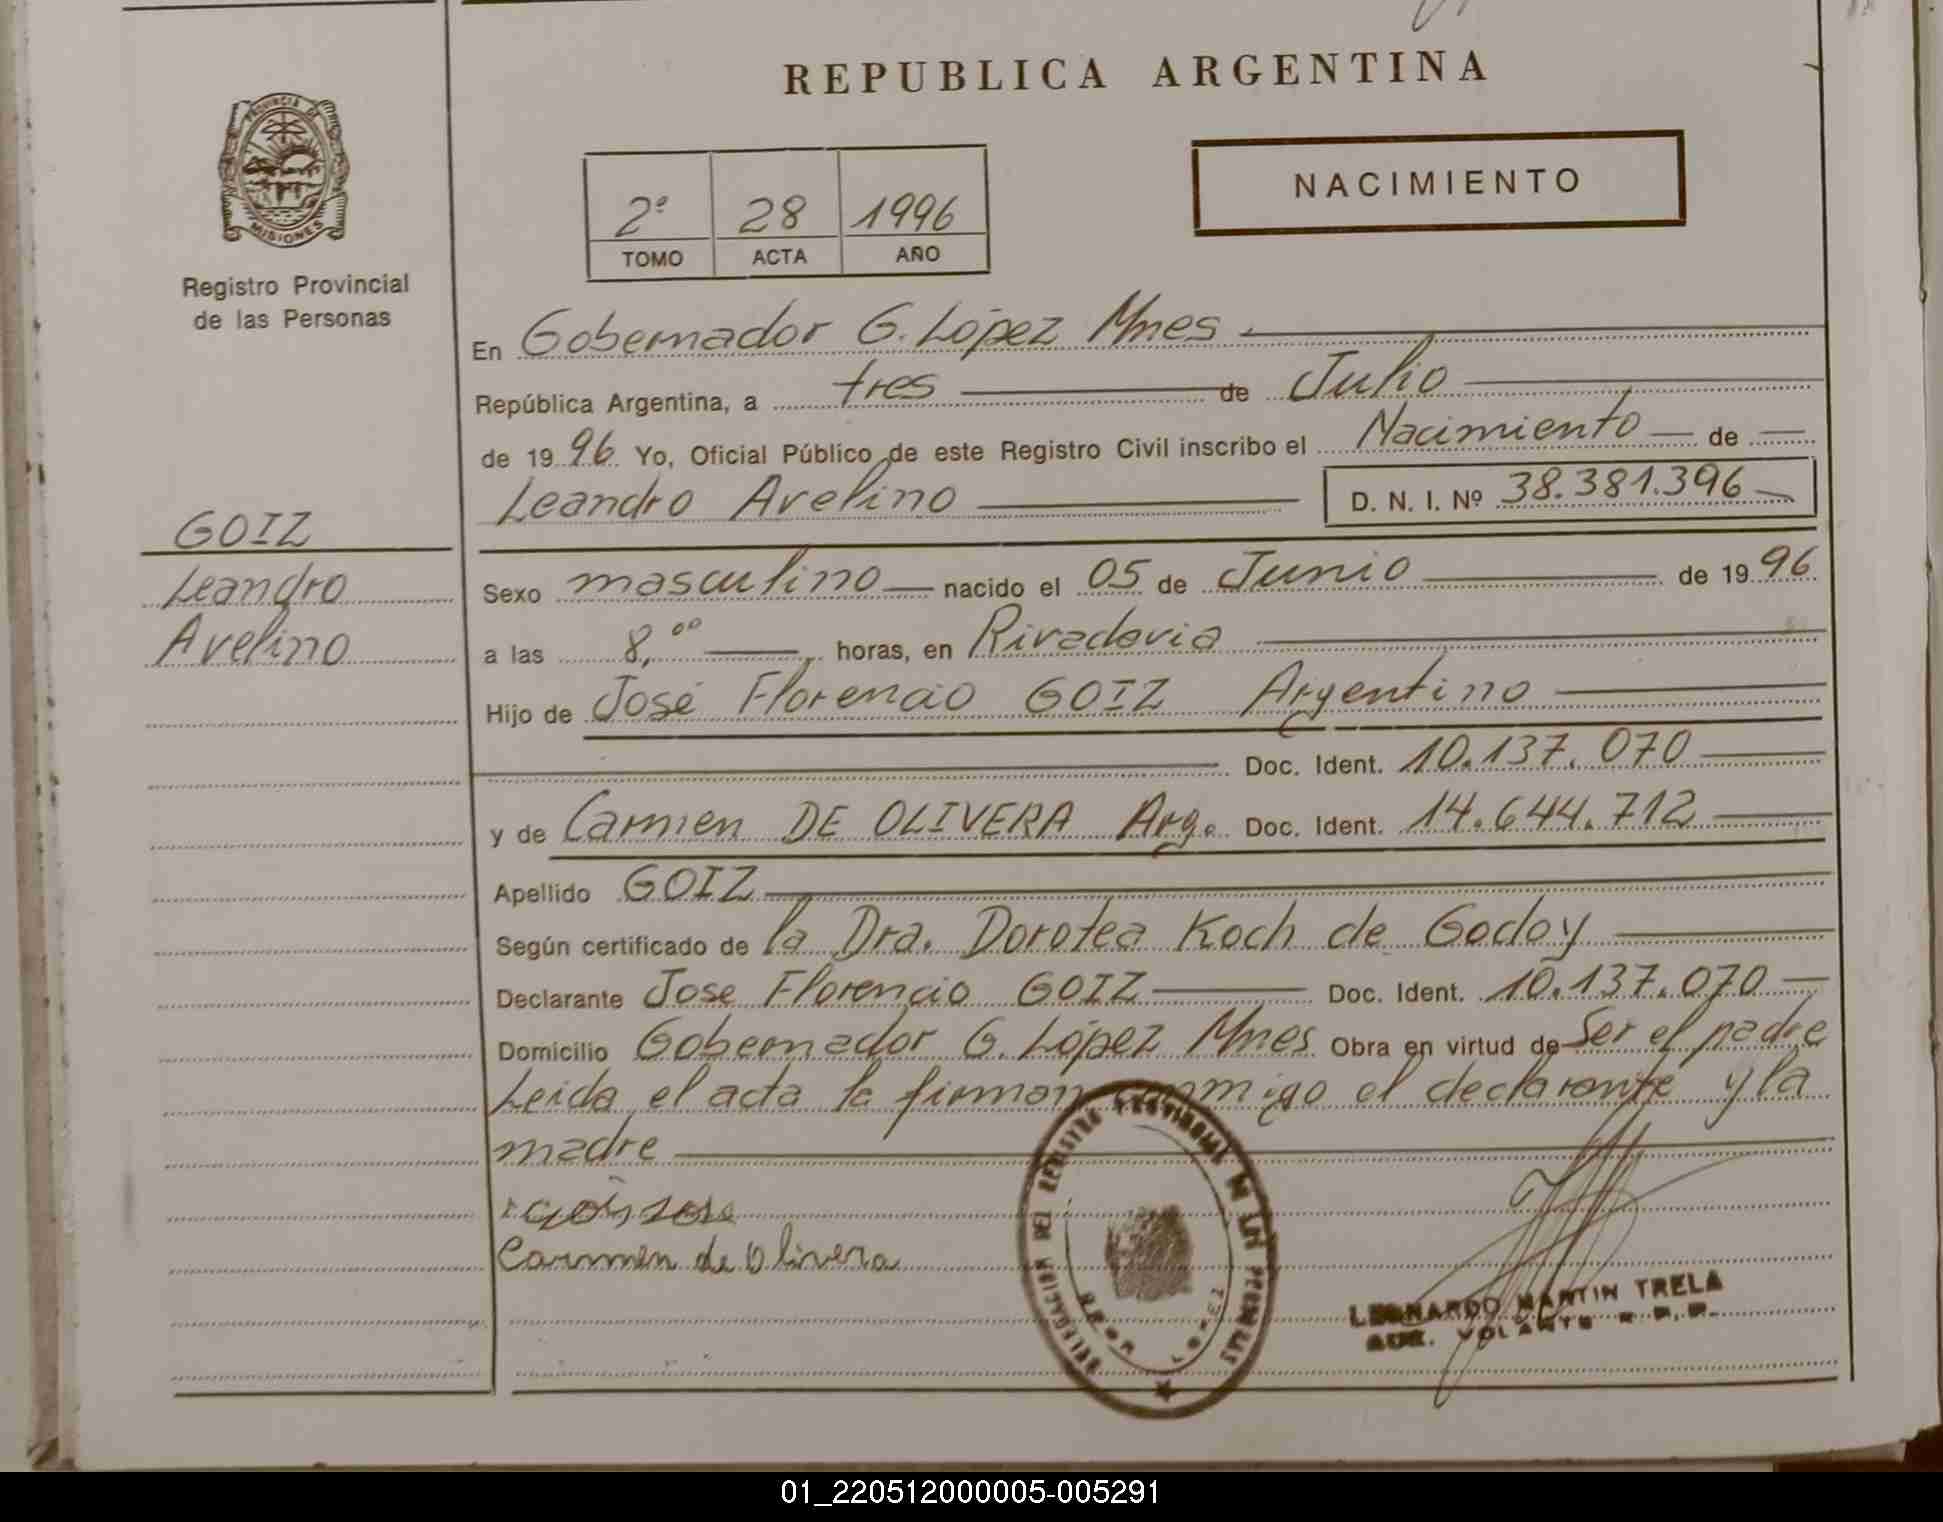 REPUBLICA ARGENTINA
PROVINCIA DE
MISIONES
Registro Provincial
de las Personas
2º 28 1996
TOMO ACTA AÑO
NACIMIENTO
En Gobernador G. López Mnes
República Argentina, a tres de Julio
de 1996 Yo, Oficial Público de este Registro Civil inscribo el Nacimiento de
Leandro Avelino D. N. I. Nº 38.381.396
GOIZ
Leandro
Avelino
Sexo masculino nacido el 05 de Junio de 1996
a las 8,00 horas, en Rivadavia
Hijo de José Florencio GOIZ Argentino
Doc. Ident. 10.137.070
y de Carmen DE OLIVERA Arg. Doc. Ident. 14.644.712
Apellido GOIZ
Según certificado de la Dra. Dorotea Koch de Godoy
Declarante Jose Florencio GOIZ Doc. Ident. 10.137.070
Domicilio Gobernador G. López Mnes Obra en virtud de Ser el padre
Leida el acta la firman conmigo el declarante y la
madre
Carmen de Olivera
DELEGACION DEL REGISTRO PROVINCIAL DE LAS PERSONAS
LOPEZ
LEONARDO MARTIN TRELA
VOLANTE R. P. P.
01_220512000005-005291